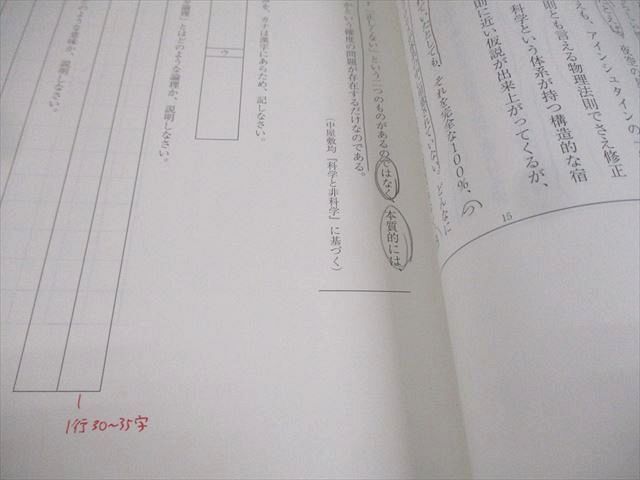 も、アインシュタインの
則とも言える物理法則でさえ修正
科学という体系が持つ構造的な宿
則に近い仮説が出来上がってくるが、
それを完全な100%、の
15
正しくない」という二つのものがあるのではなく、本質的には、
かという確度の問題が存在するだけなのである。
(中屋敷均『科学と非科学』に基づく)
を、カナは漢字にあらため、記しなさい。
ウ
論理」とはどのような論理か、説明しなさい。
のような意味か、説明しなさい。
1行30~35字